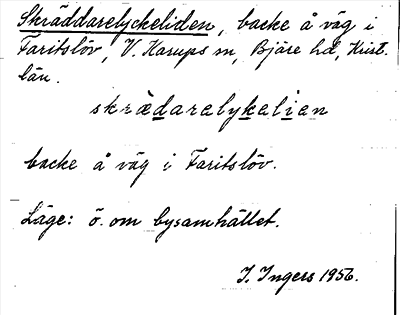 Skräddarelyckeliden, backe å väg i
Faritslöv, V. Karups sn, Bjäre hd, Krist.
län.
skrädarelykelien
backe å väg i Faritslöv.
Läge: ö. om bysamhället.
I. Ingers 1956.